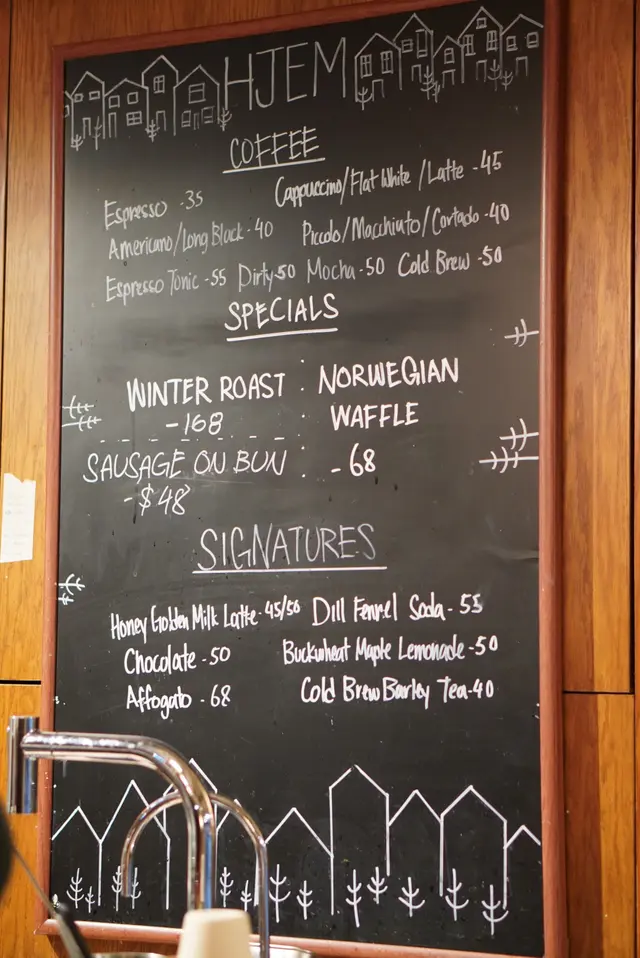 HJEM
COFFEE
Espresso - 35
Cappuccino/Flat White/Latte - 45
Americano/Long Black - 40
Piccolo/Macchiato/Cortado - 40
Espresso Tonic - 55 Dirty - 50 Mocha - 50 Cold Brew - 50
SPECIALS
WINTER ROAST
- 168
NORWEGIAN
WAFFLE
- 68
SAUSAGE ON BUN
- $48
SIGNATURES
Honey Golden Milk Latte - 45/50
Dill Fennel Soda - 55
Chocolate - 50
Buckwheat Maple Lemonade - 50
Affogato - 68
Cold Brew Barley Tea - 40